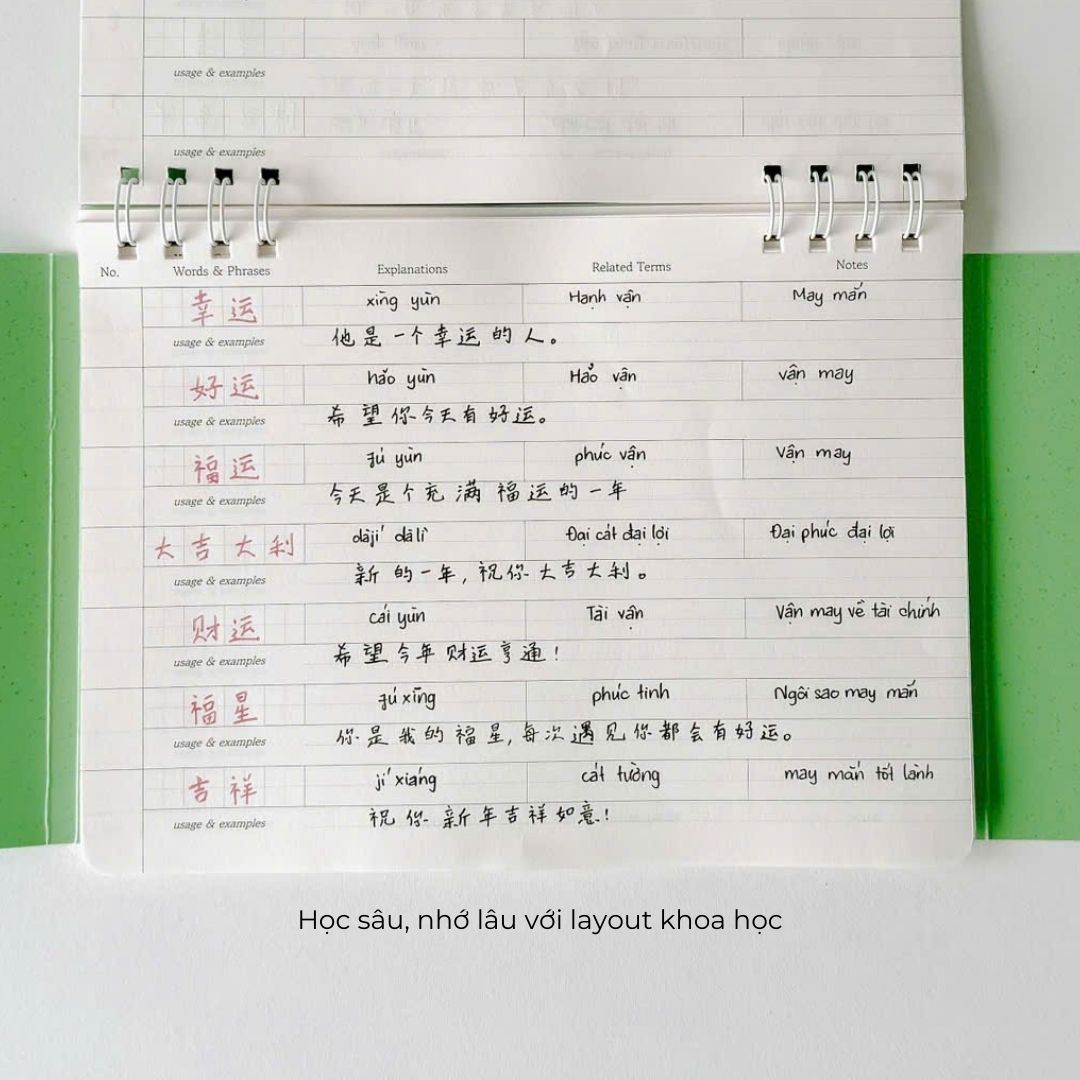 usage & examples
usage & examples
No. Words & Phrases Explanations Related Terms Notes
幸运 xìng yùn Hạnh vận May mắn
usage & examples 他是一个幸运的人。
好运 hǎo yùn Hảo vận vận may
usage & examples 希望你今天有好运。
福运 fú yùn phúc vận Vận may
usage & examples 今天是个充满福运的一年
大吉大利 dàjí dàlì Đại cát đại lợi Đại phúc đại lợi
usage & examples 新的一年,祝你大吉大利。
财运 cái yùn Tài vận Vận may về tài chính
usage & examples 希望今年财运亨通!
福星 fú xīng phúc tinh Ngôi sao may mắn
usage & examples 你是我的福星,每次遇见你都会有好运。
吉祥 jí xiáng cát tường may mắn tốt lành
usage & examples 祝你新年吉祥如意!
Học sâu, nhớ lâu với layout khoa học